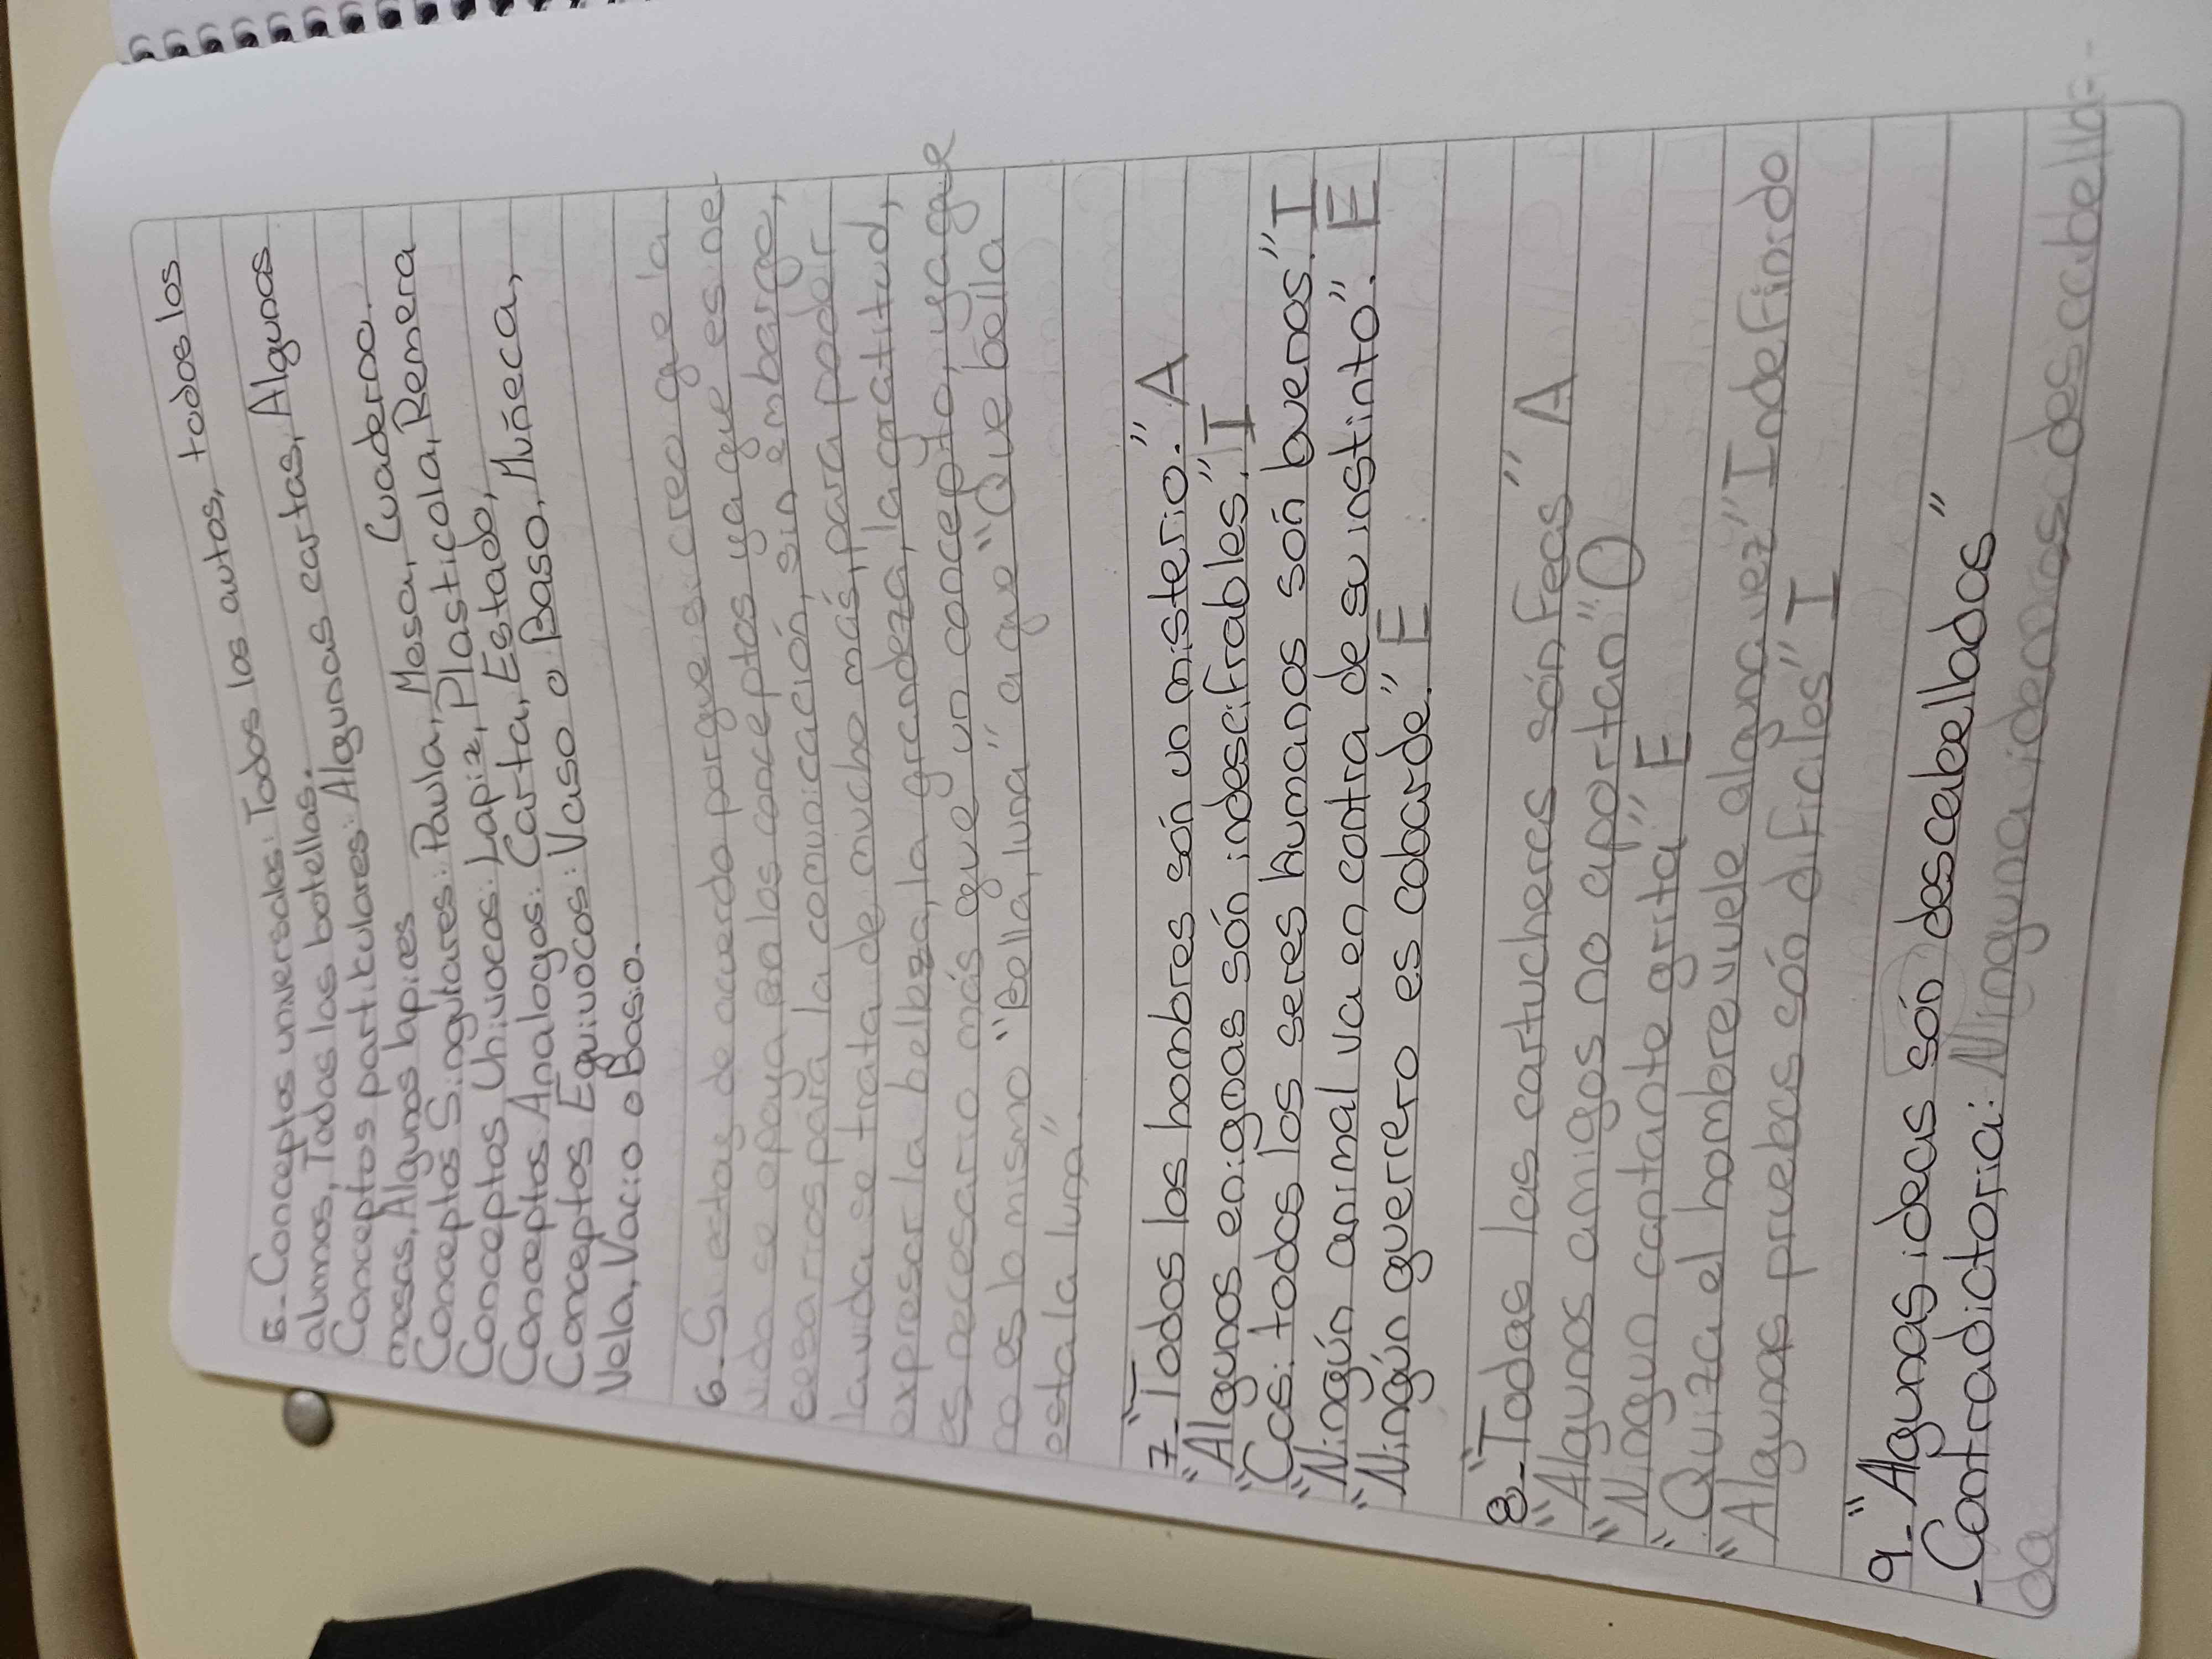 5- Conceptos universales: Todos los autos, todos los
alumnos, Todas las botellas.
Conceptos particulares: Algunas cartas, Algunas
mesas, Algunos lapices
Conceptos Singulares: Paula, Mesa, Cuaderno.
Conceptos Univocos: Lapiz, Plasticola, Remera
Conceptos Analogos: Carta, Estado,
Conceptos Equivocos: Vaso o Baso, Muñeca,
Vela, Vacio o Basio.
6- Si estoy de acuerdo porque si creo que la
vida se apoya en los conceptos ya que es ne
cesarios para la comunicación, sin embargo,
la vida se trata de mucho más, para poder
expresar la belleza, la grandeza, la gratitud,
es necesario más que un concepto, ya que
no es lo mismo "Bella, luna" a que "Que bella
esta la luna".
7- "Todos los hombres són un misterio." A
"Algunos enigmas són indescifrables". I
"Casi todos los seres humanos són buenos". I
"Ningún animal va en contra de su instinto". E
"Ningún guerrero es cobarde." E
8- "Todas las cartucheras són feas" A
"Algunos amigos no aportan" O
"Ningun cantante grita" E
"Quiza el hombre vuele alguna vez" Indefinido
"Algunas pruebas són dificiles" I
9- "Algunas ideas són descabellados"
- Contradictoria: Ninguna idea no es descabella-
da